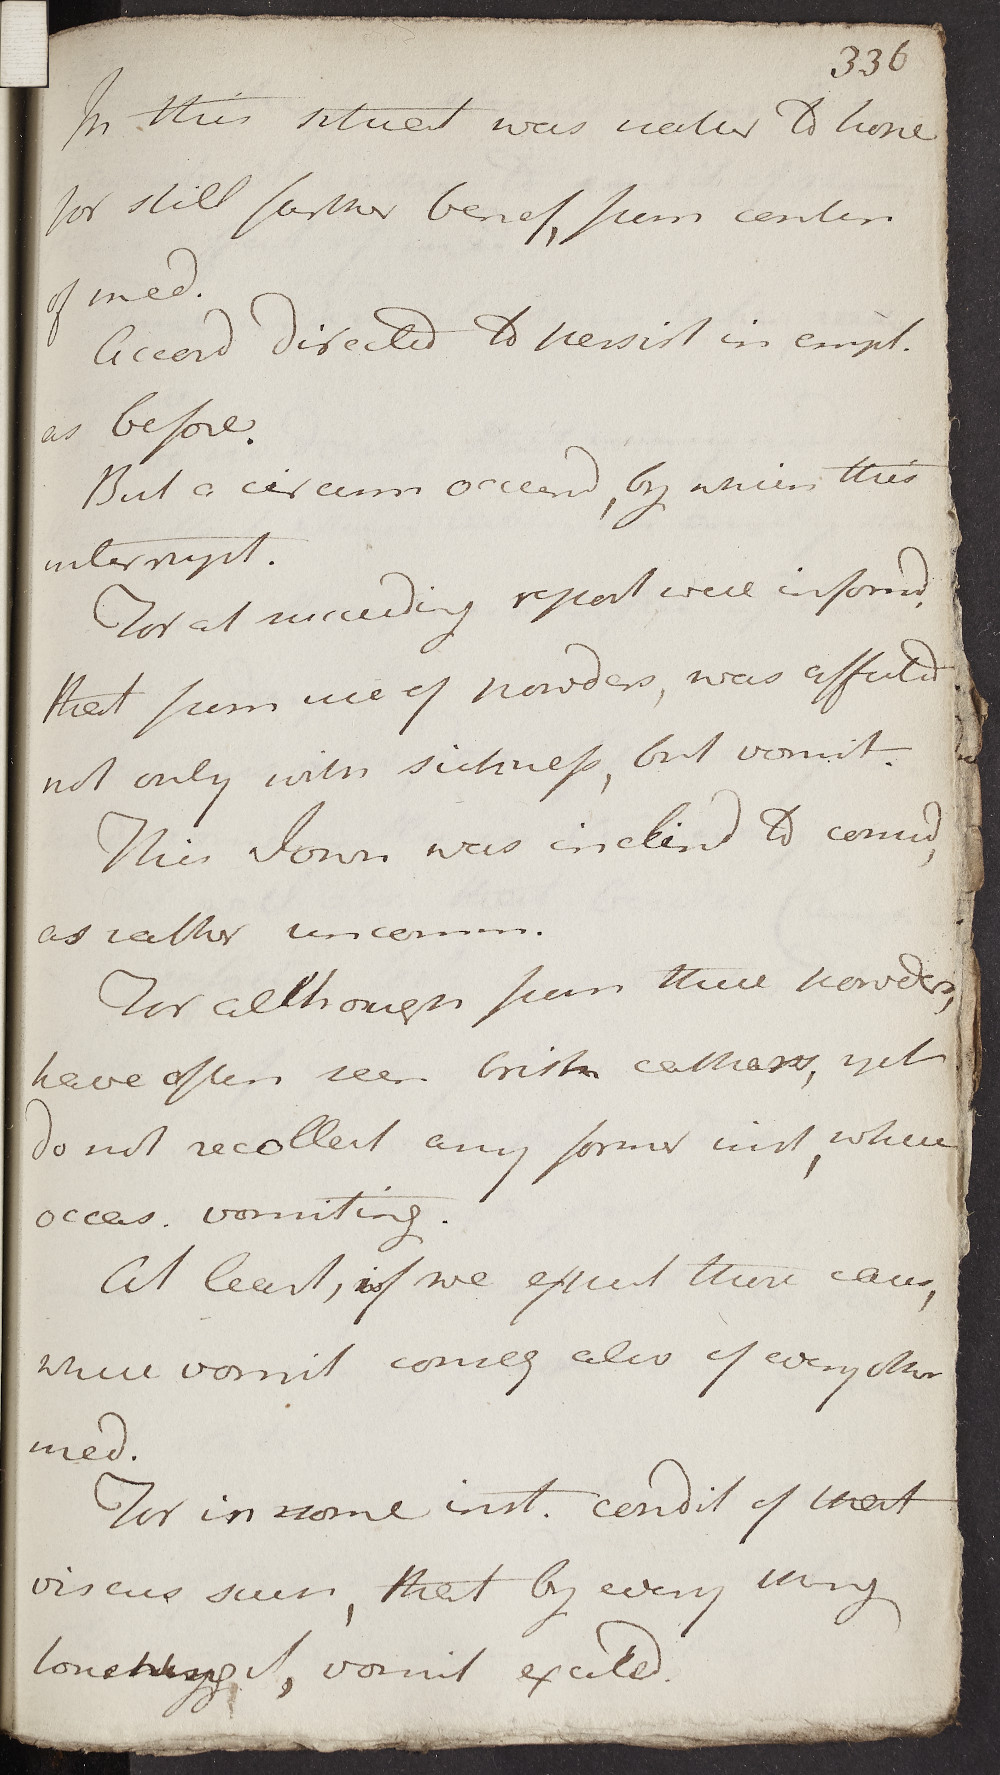 336
In this situat was rather to hope
for still further benef, from contin
of med.
Accord directed to persist in empl.
as before.
But a circum occurrd, by which this
interrupt.
For at succeeding report were informd,
that from use of powders, was affected
not only with sickness, but vomit.
This I own was inclind to consid,
as rather uncomm.
For although from these powders,
have often seen brisk cathars, yet
do not recollect any former inst, where
occas. vomiting.
At least, if we except those cases,
where vomit conseq also of every other
med.
For in some inst. condit of that
viscus such, that by every thing
touching it, vomit excited.